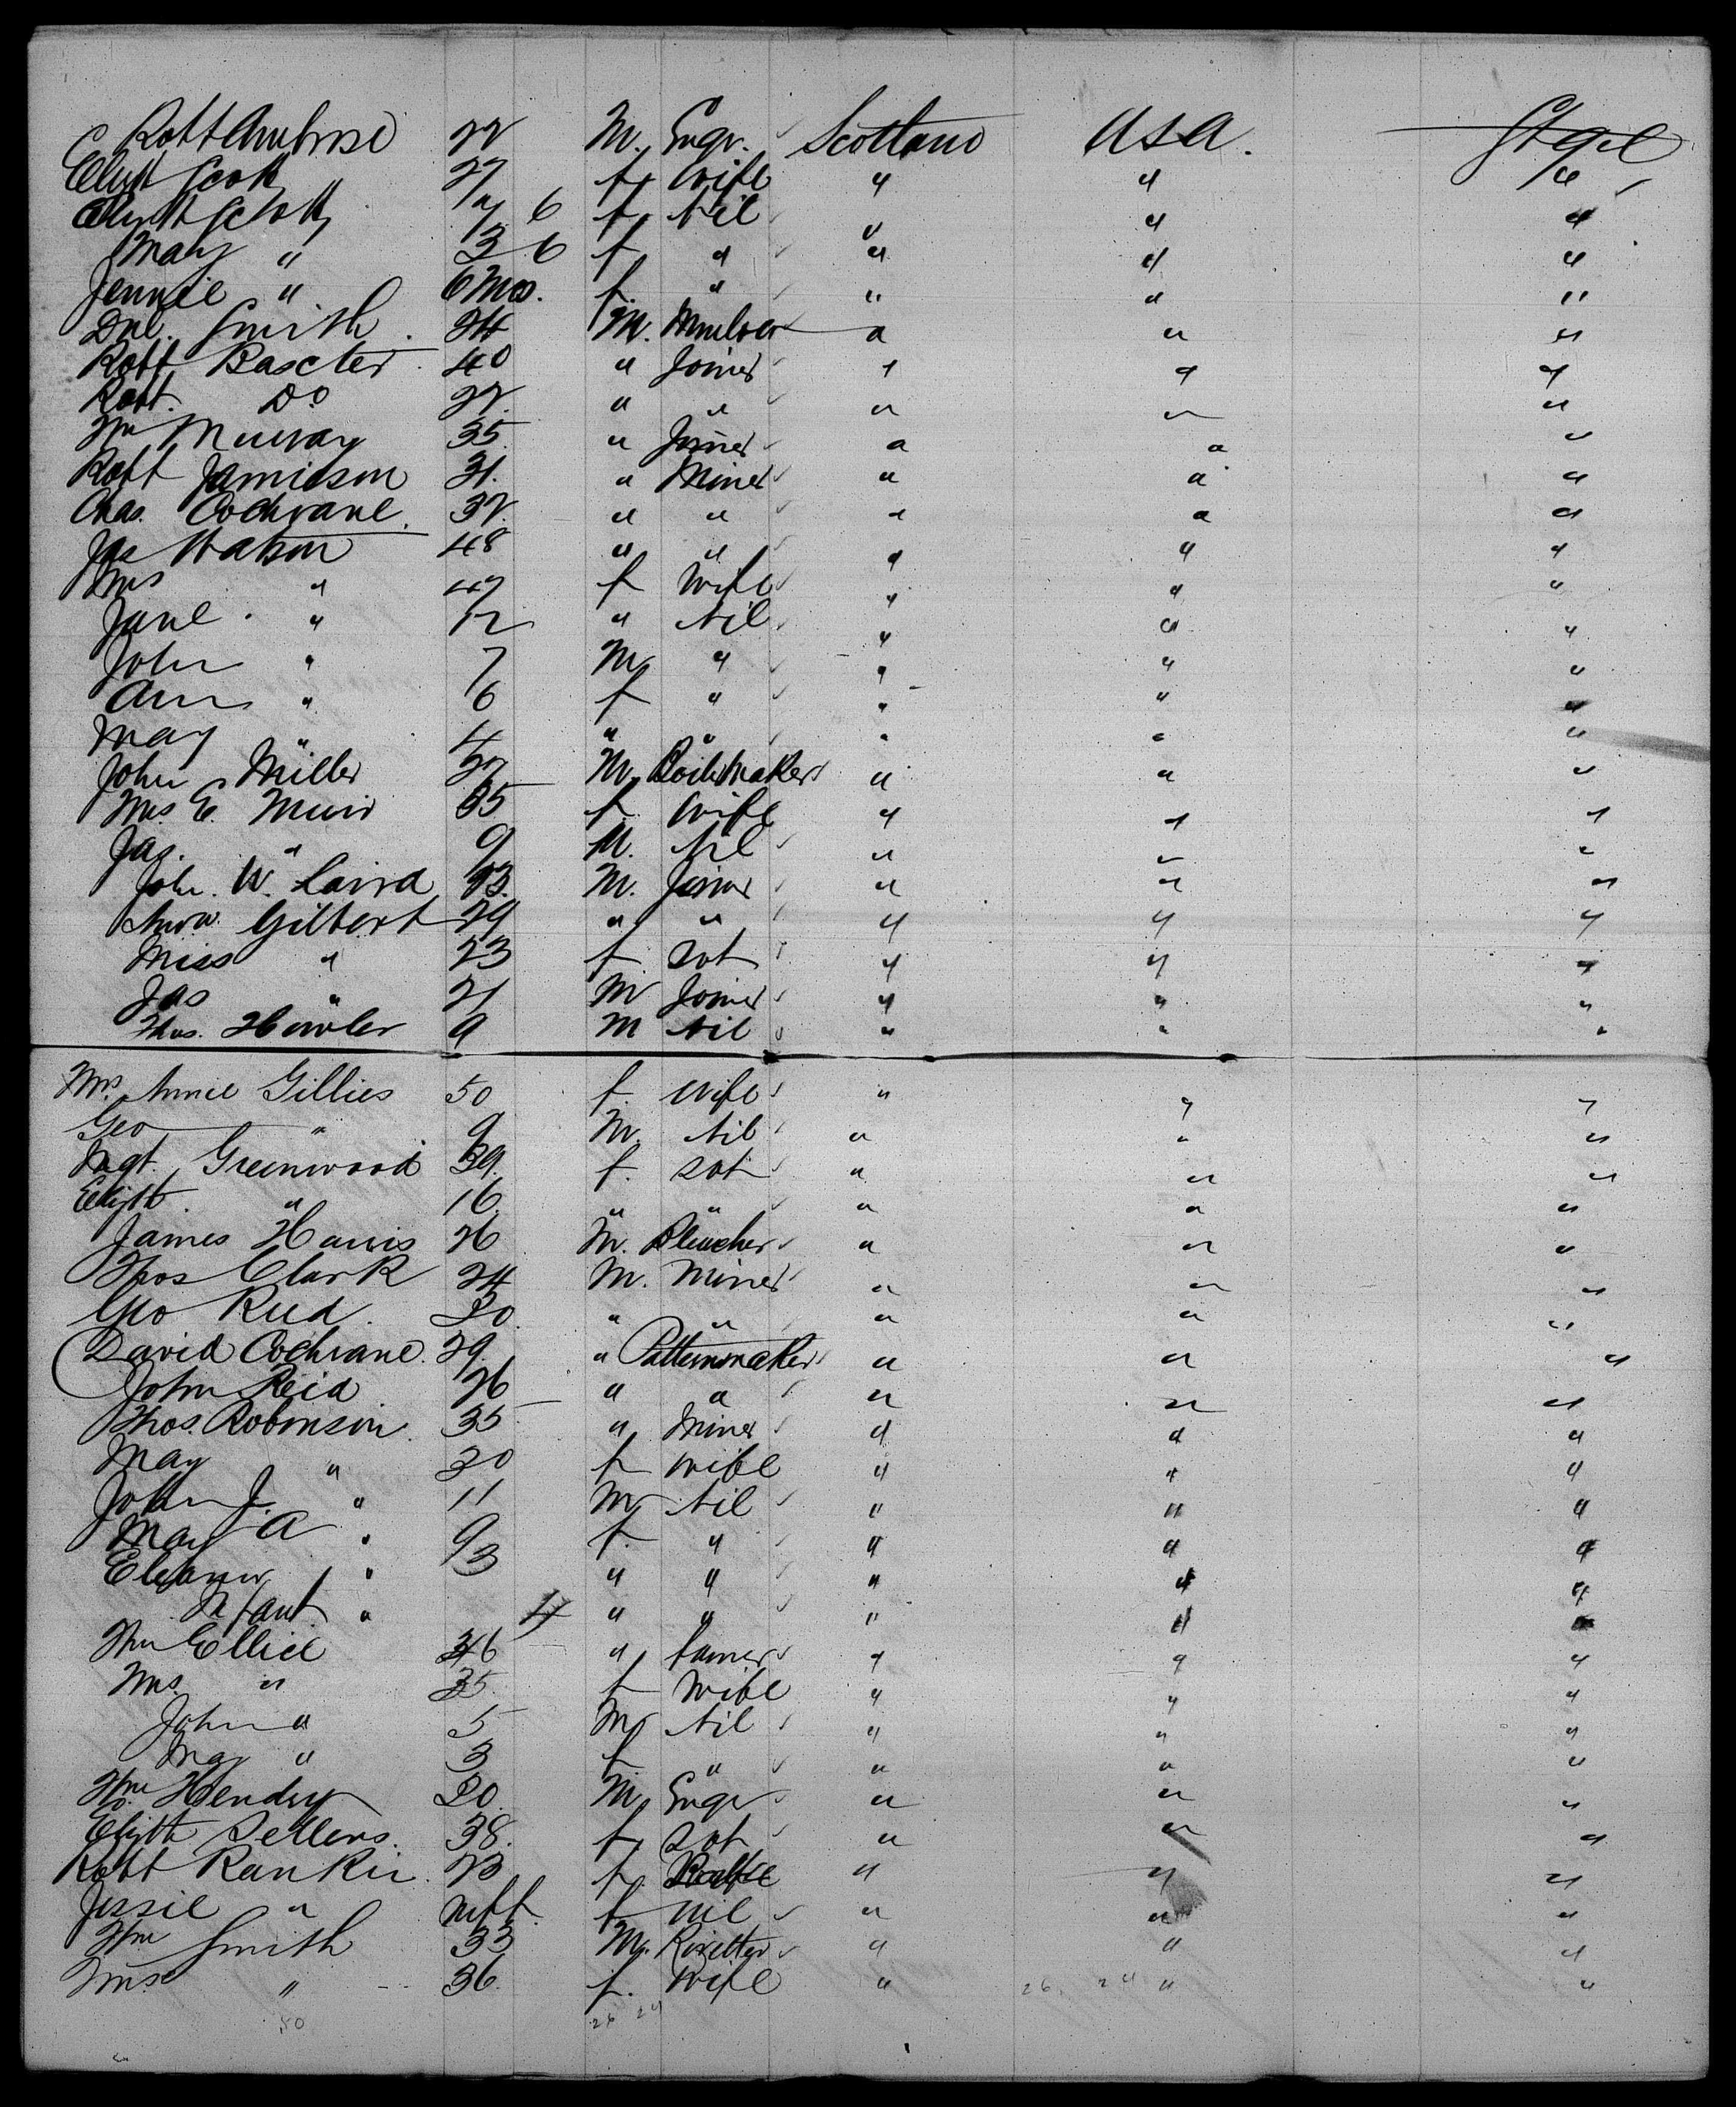 Robt Ambrose 22 M. Engr. Scotland USA. Stgel
Elizth Scott 27 f. Wife " " "
Elizth Scott 7 6 f. Nil " " "
Mary " 3 6 f " " " "
Jennie " 6 Mos. f. " " " "
Dnl. Smith. 24 M. " " "
Robt Baxter 40 " Joiner " " "
Robt. Do 22. " " " " "
Wm Murray 35. " Joiner " " "
Robt Jamieson 31. " Miner " " "
Chas. Cochrane. 32. " " " " "
Jas Watson 48 " " " " "
Mrs " 47 f Wife " " "
Jane " 12 " Nil " " "
John " 7 M " " " "
Ann " 6 f " " " "
May " 4 " " " " "
John Miller 27 M. Boilermaker " " "
Mrs. E. Muir 35 f. Wife " " "
Jas. " 9 M. Nil " " "
John. W. Laird 23. M. Joiner " " "
Andw. Gilbert 29 " " " " "
Miss " 23 f Svt " " "
Jas " 21 M Joiner " " "
Thos. Howler 9 M Nil " " "
Mrs. Annie Gillies 50 f. Wife " " "
Geo " 9 M. Nil " " "
Mgt. Greenwood 39. f. Svt " " "
Elizth. " 16. " " " " "
James Harris 26 M. Bleacher " " "
Thos Clark 24 M. Miner " " "
Geo Reid. 20. " " " " "
David Cochrane. 29. " Patternmaker " " "
John Reid 26 " " " " "
Thos. Robinson. 35 " Miner " " "
May " 30 f Wife " " "
John J. " 11 M Nil " " "
May A " 9 f. " " " "
Eleanor " 3 " " " " "
Infant " 4 " " " " "
Wm Ellice 36 " farmer " " "
Mrs. " 35. f Wife " " "
John " 5 M Nil " " "
May " 3 f " " " "
Wm Hendry 20. M. Engr " " "
Elizth Sellers. 38. f. Svt " " "
Robt Rankin. 23 f. " " "
Jessie " inft. f nil " " "
Wm Smith 33 M. Rivetter " " "
Mrs " 36. f. Wife " " "
26 24
50 26 24